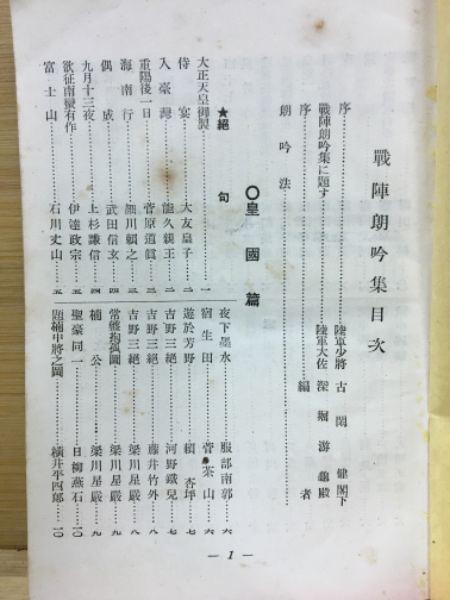 戰陣朗吟集目次
序……陸軍少將 古閑健閣下
戰陣朗吟集に題す……陸軍大佐 深堀游龜殿
序……編者
朗吟法
○皇國篇
★絕句
大正天皇御製……一
侍宴……大友皇子…二
入臺灣……能久親王…二
重陽後一日……菅原道眞…二
海南行……細川賴之…三
偶成……武田信玄…四
九月十三夜……上杉謙信…四
欲征南蠻有作……伊達政宗…五
富士山……石川丈山…五
夜下墨水……服部南郭…六
宿生田……菅茶山…六
遊於芳野……賴杏坪…七
吉野三絕……河野鐵兒…七
吉野三絕……藤井竹外…八
吉野三絕……梁川星巖…八
常盤抱孤圖……梁川星巖…九
楠公……梁川星巖…九
聖豪同一……日柳燕石…一〇
題楠中將之圖……橫井平四郞…一〇
— 1 —